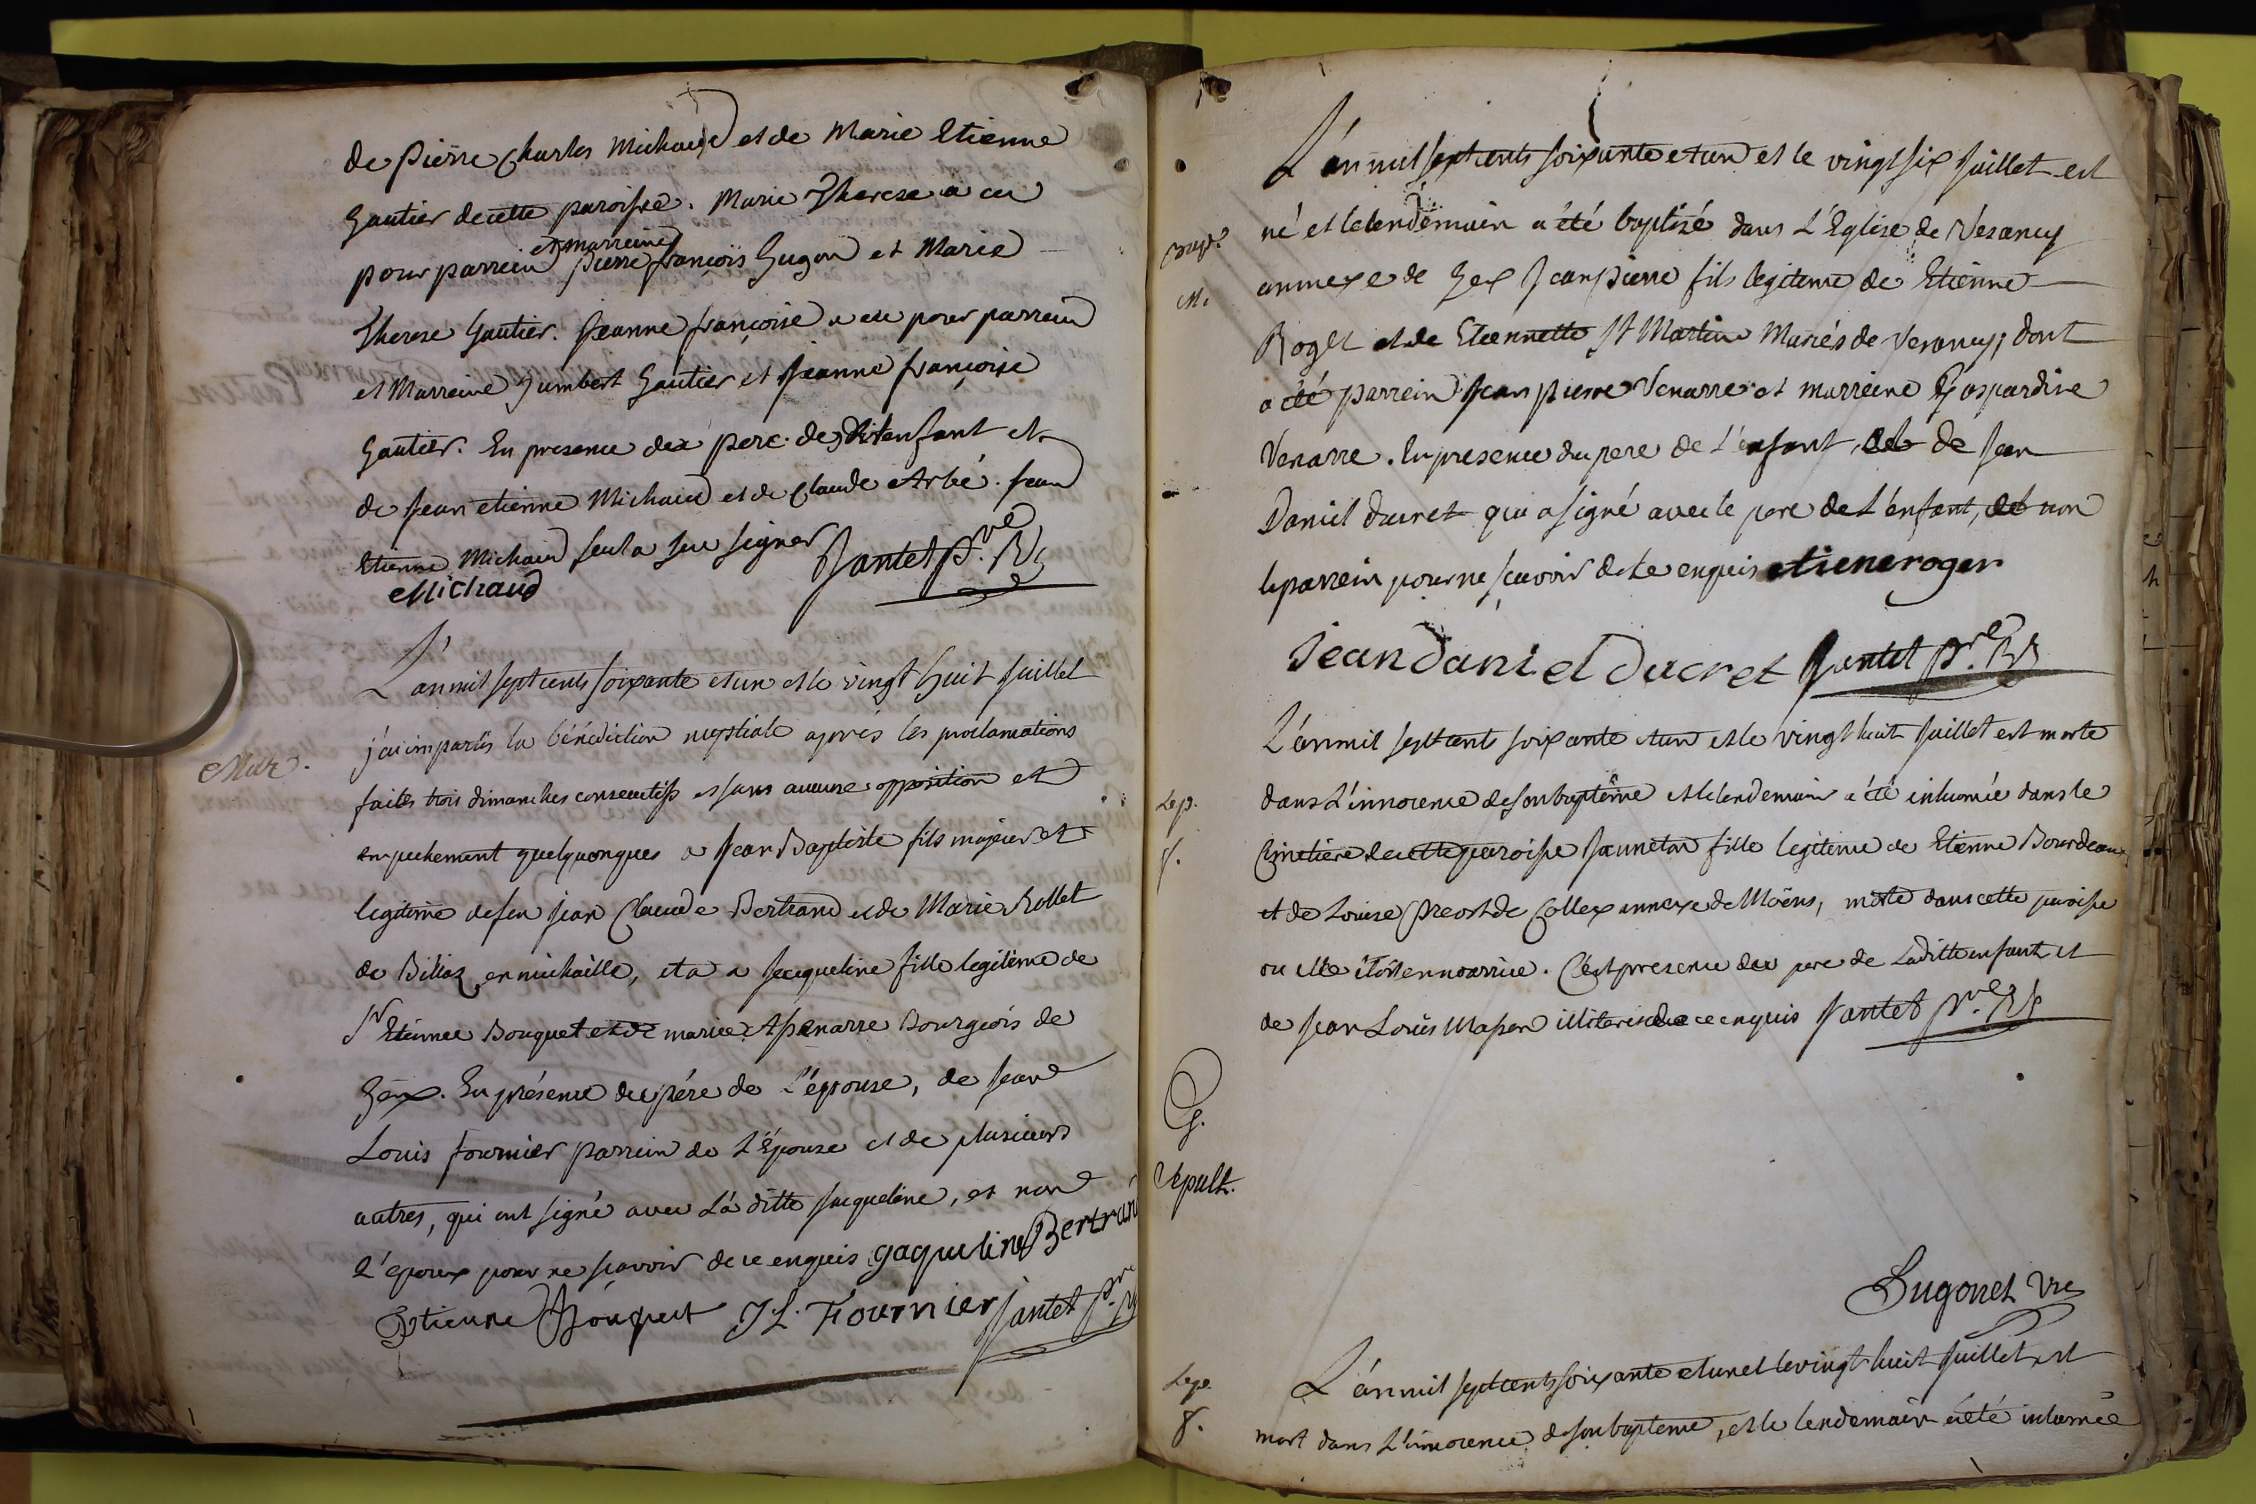 de Pierre Charles Michaud et de Marie Etienne
Gautier de cette paroisse. Marie Therese a eu
et marreine
pour parrein Pierre françois Hugon et Marie
Therese Gautier. Jeanne françoise a eu pour parrein
et Marreine humbert Gautier et Jeanne françoise
Gautier. En presence du pere de dit enfant et
de Jean etienne Michaud et de Claude Arbé. Jean
Etienne Michaud seul a seu signer Jantet ptre
Michaud
L'an mil sept cents soixante et un et le vingt huit Juillet
j'ai imparti la bénédiction nuptiale après les proclamations
Mar.
faites trois dimanches consecutifs et sans aucune opposition et
empechement quelquonques a Jean Baptiste fils majeur et
legitime de feu Jean Claude Bertrand et de Marie Rollet
de Billiaz en michaille, et a Jacqueline fille legitime de
Sr Etienne Bouquet et de marie Apenarre Bourgeois de
Gex. En présence du pére de L'épouse, de Jean
Louis fournier parrein de L'Epouse et de plusieurs
autres, qui ont signé avec La ditte Jacqueline, et non
L'epoux pour ne scavoir de ce enquis gaqueline Bertrand
Etienne Bouquet JL. Fournier Jantet ptre
L'an mil sept cents soixante et un et le vingt six Juillet est
né et le lendemain a été baptizé dans L'Eglise de Vesancy
Bapt.
M.
annexe de Gex Jean pierre fils legitime de Etienne
Roget et de Etiennette St Martin Mariés de Vesancy, dont
a été parrein Jean pierre Venarre et marreine Gaspardine
Venarre. En presence du pere de L'enfant, de Jean
Daniel ducret qui a signé avec le pere de L'enfant, et non
le parrein pour ne scavoir de ce enquis etiene roger
Jean daniel ducret Jantet ptre
L'an mil sept cents soixante et un et le vingt huit Juillet est morte
dans L'innocence de son baptême et le lendemain a été inhumée dans le
Sep.
Cimetiere de cette paroisse Jeanneton fille legitime de Etienne Bourdeau
et de Louise Preost de Collex annexe de Moëns, morte dans cette paroisse
ou elle étoit en nourrice. C'est presence du pere de Laditte enfant et
de Jean Louis Masson illiteris de ce enquis Jantet ptre
G.
Sepult.
Hugonet Vic
L'an mil sept cents soixante et un et le vingt huit Juillet est
Sep.
mort dans L'innocence de son bapteme, et le lendemain a été inhumée